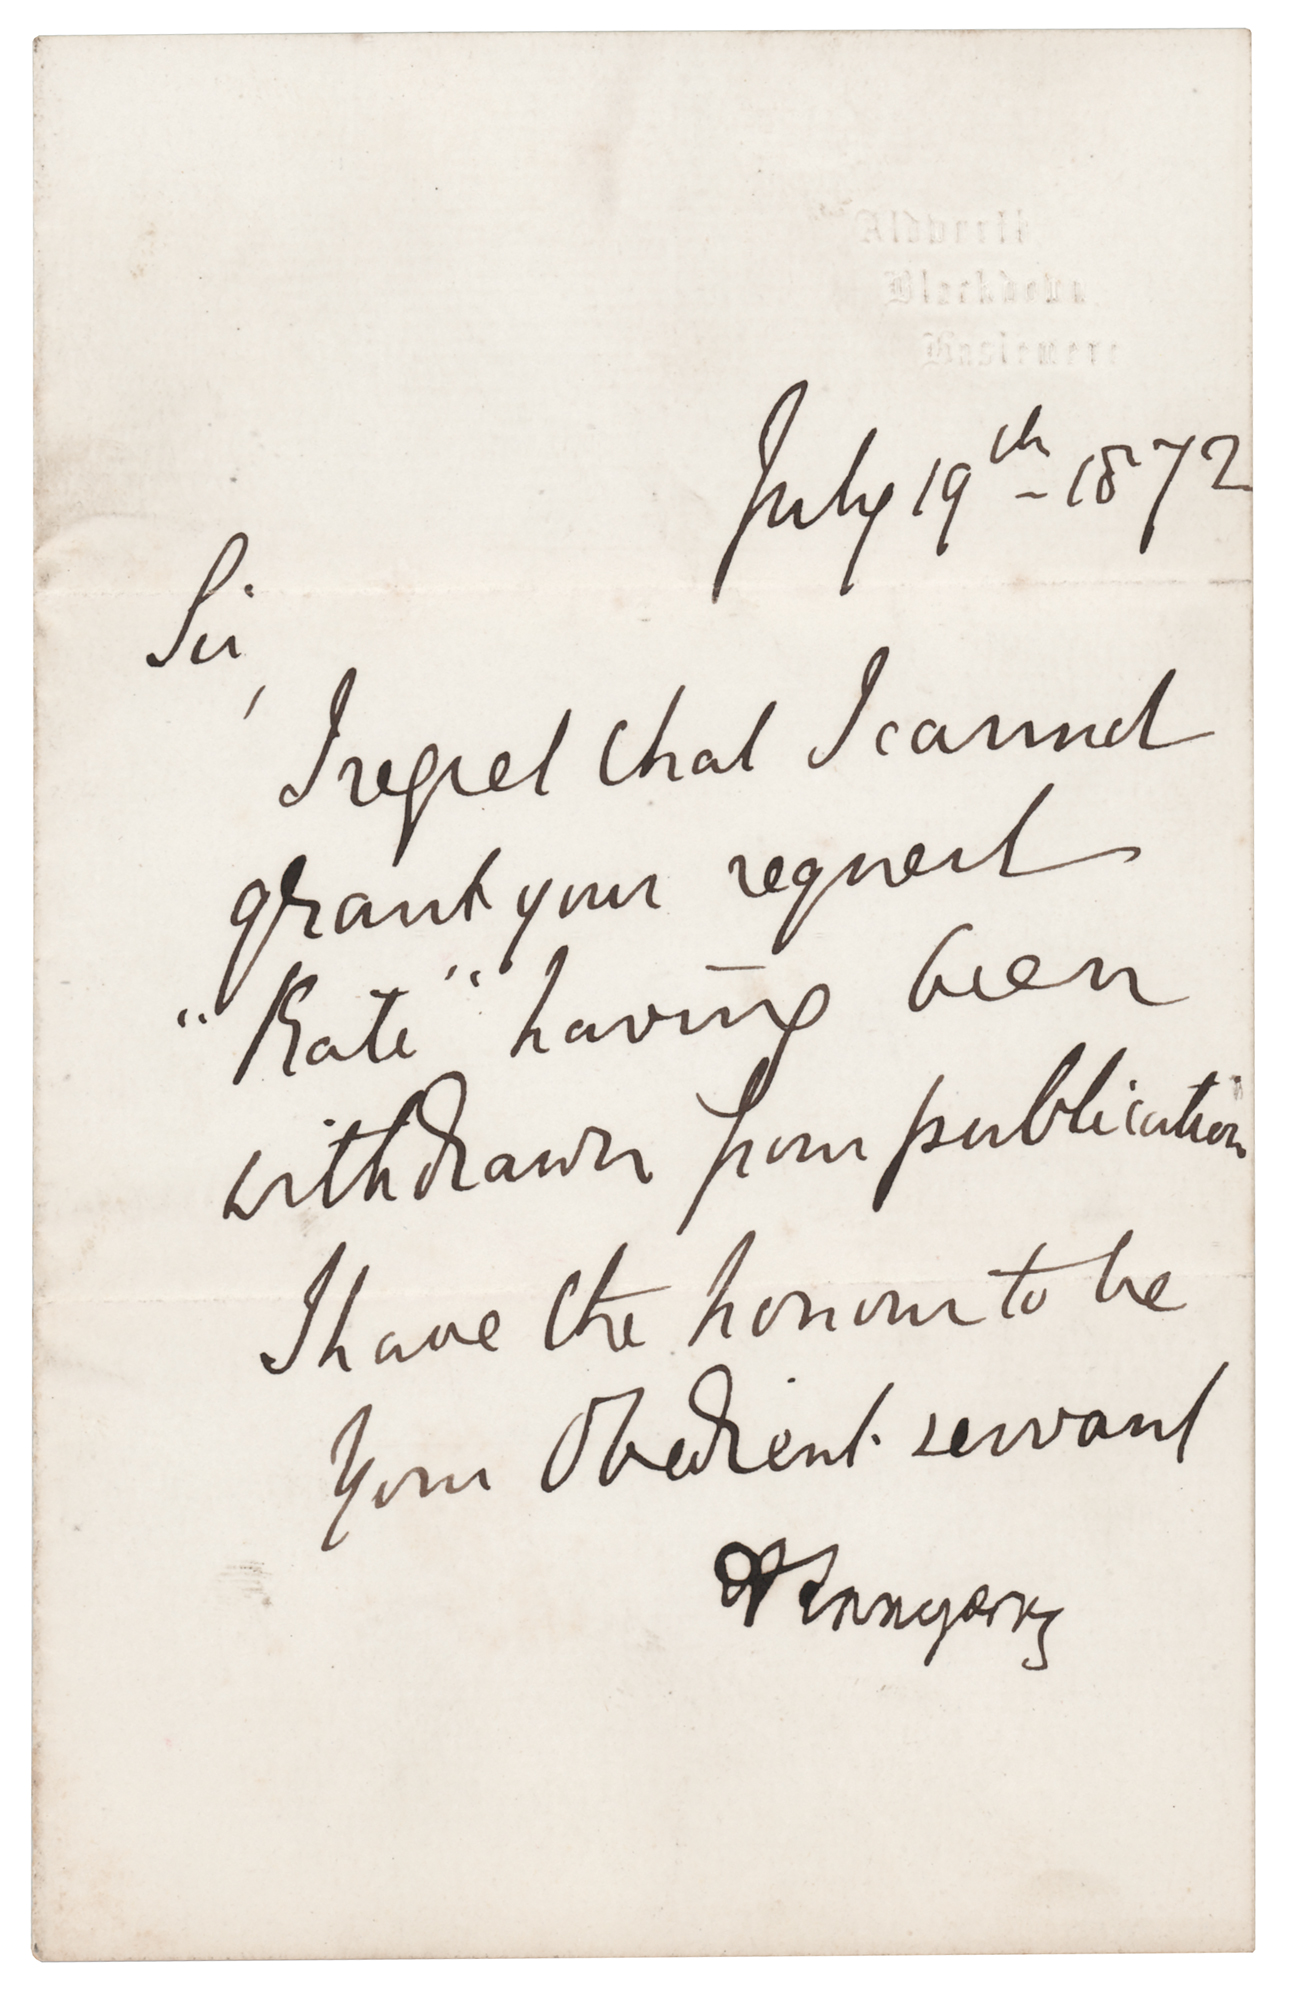 Aldworth
Blackdown
Haslemere
July 19th - 1872
Sir,
I regret that I cannot
grant your request
"Kate" having been
withdrawn from publication
I have the honour to be
Your Obedient servant
A Tennyson